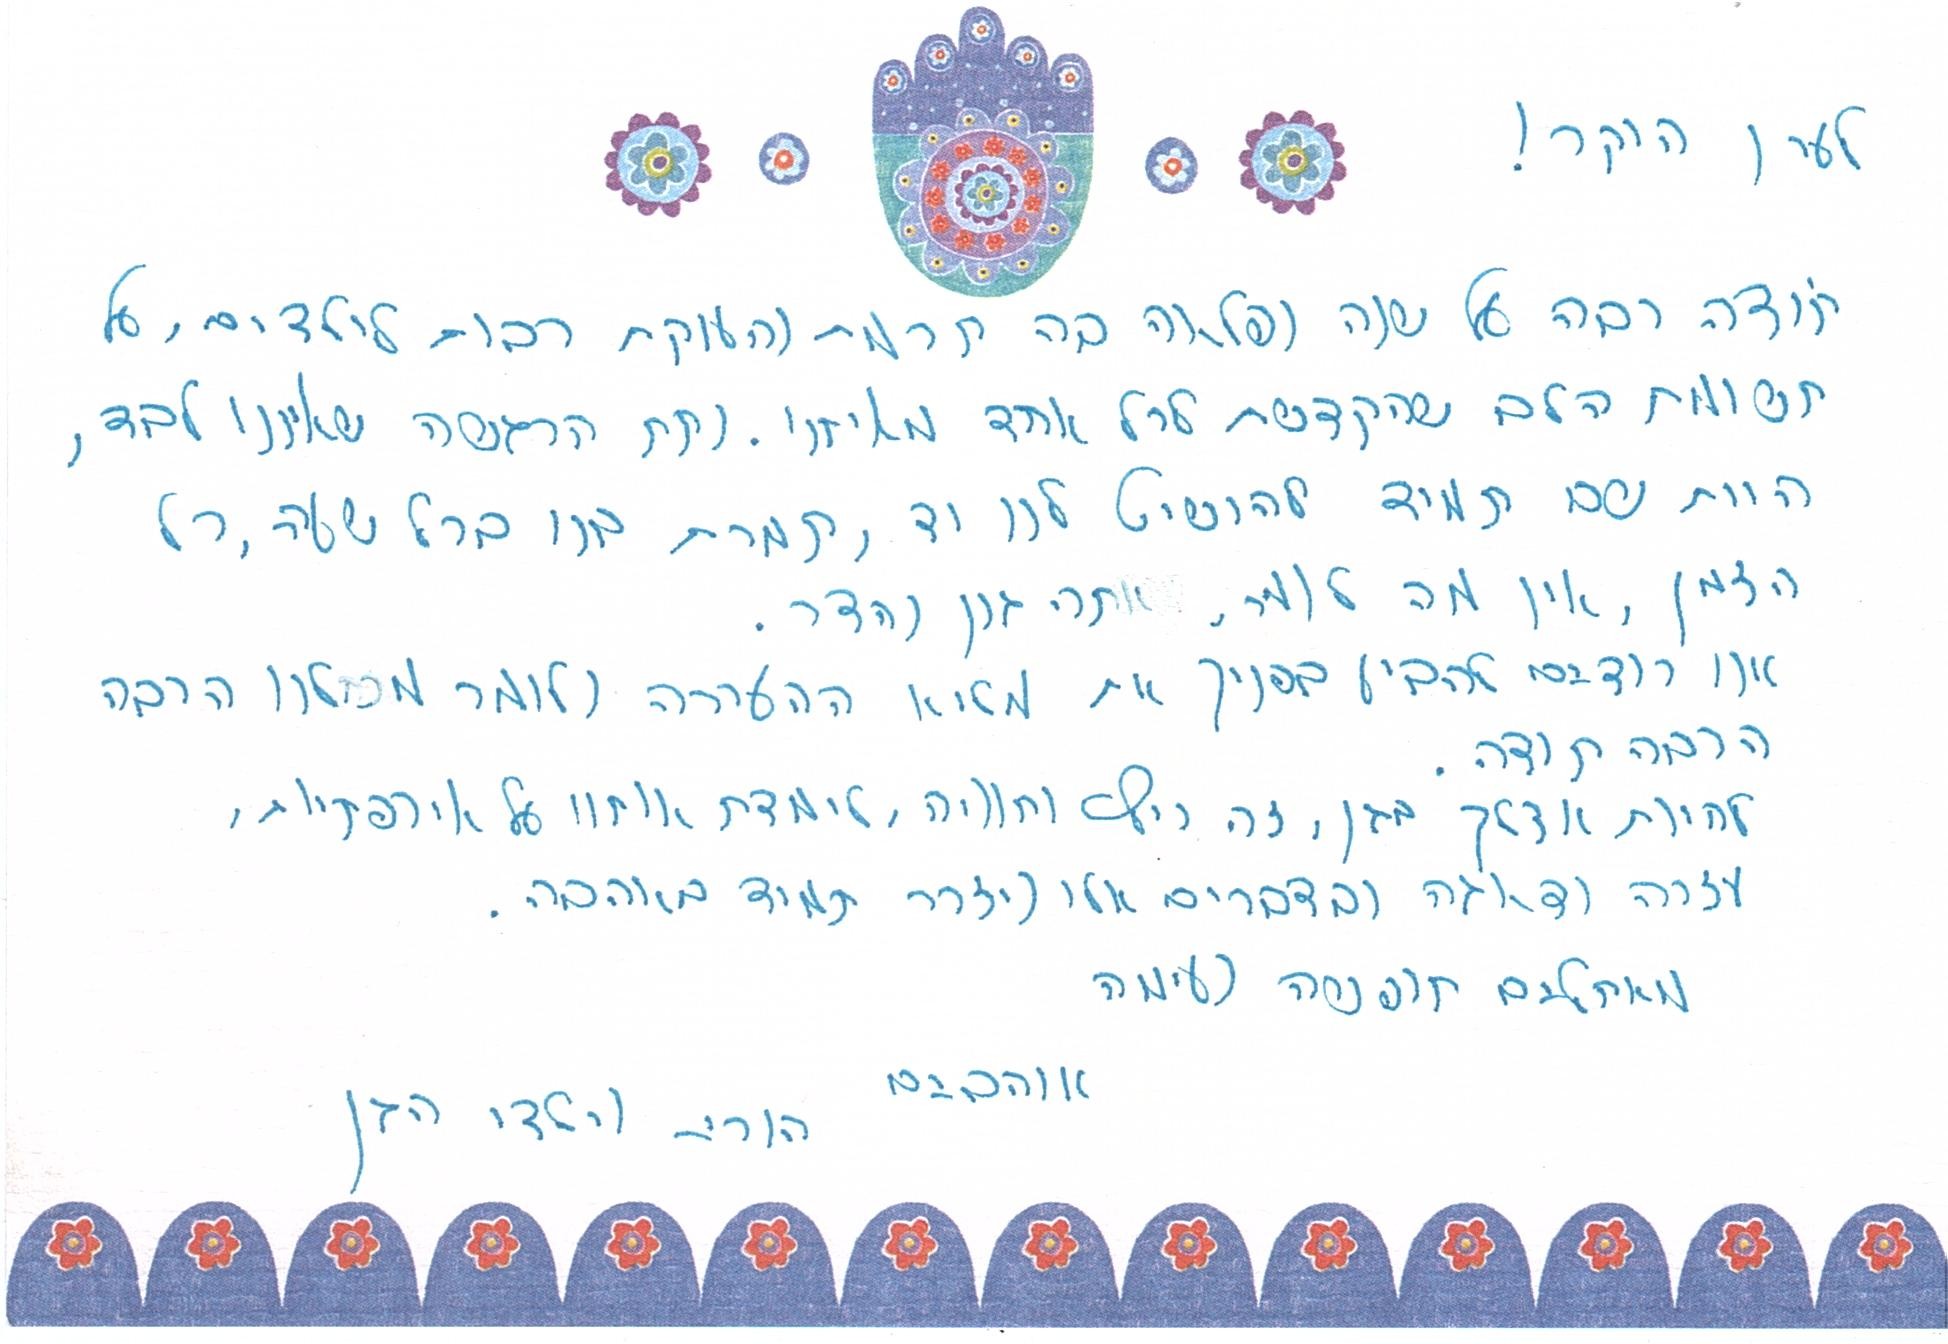 לערן היקר!
תודה רבה על שנה נפלאה בה תרמת והענקת רבות לילדים, על
תשומת הלב שהקדשת לכל אחד מאיתנו. נתת הרגשה שאיננו לבד,
היית שם תמיד להושיט לנו יד, תמכת בנו בכל שעה, כל
הזמן, אין מה לומר, אתה גנן נהדר.
אנו רוצים להביע בפניך את מלוא ההערכה ולומר מכולנו הרבה
הרבה תודה.
להיות אצלך בגן, זה כיף וחוויה, לימדת אותנו על איכפתיות,
עזרה ודאגה ובדברים אלו ניזכר תמיד באהבה.
מאחלים חופשה נעימה
אוהבים
הורי וילדי הגן